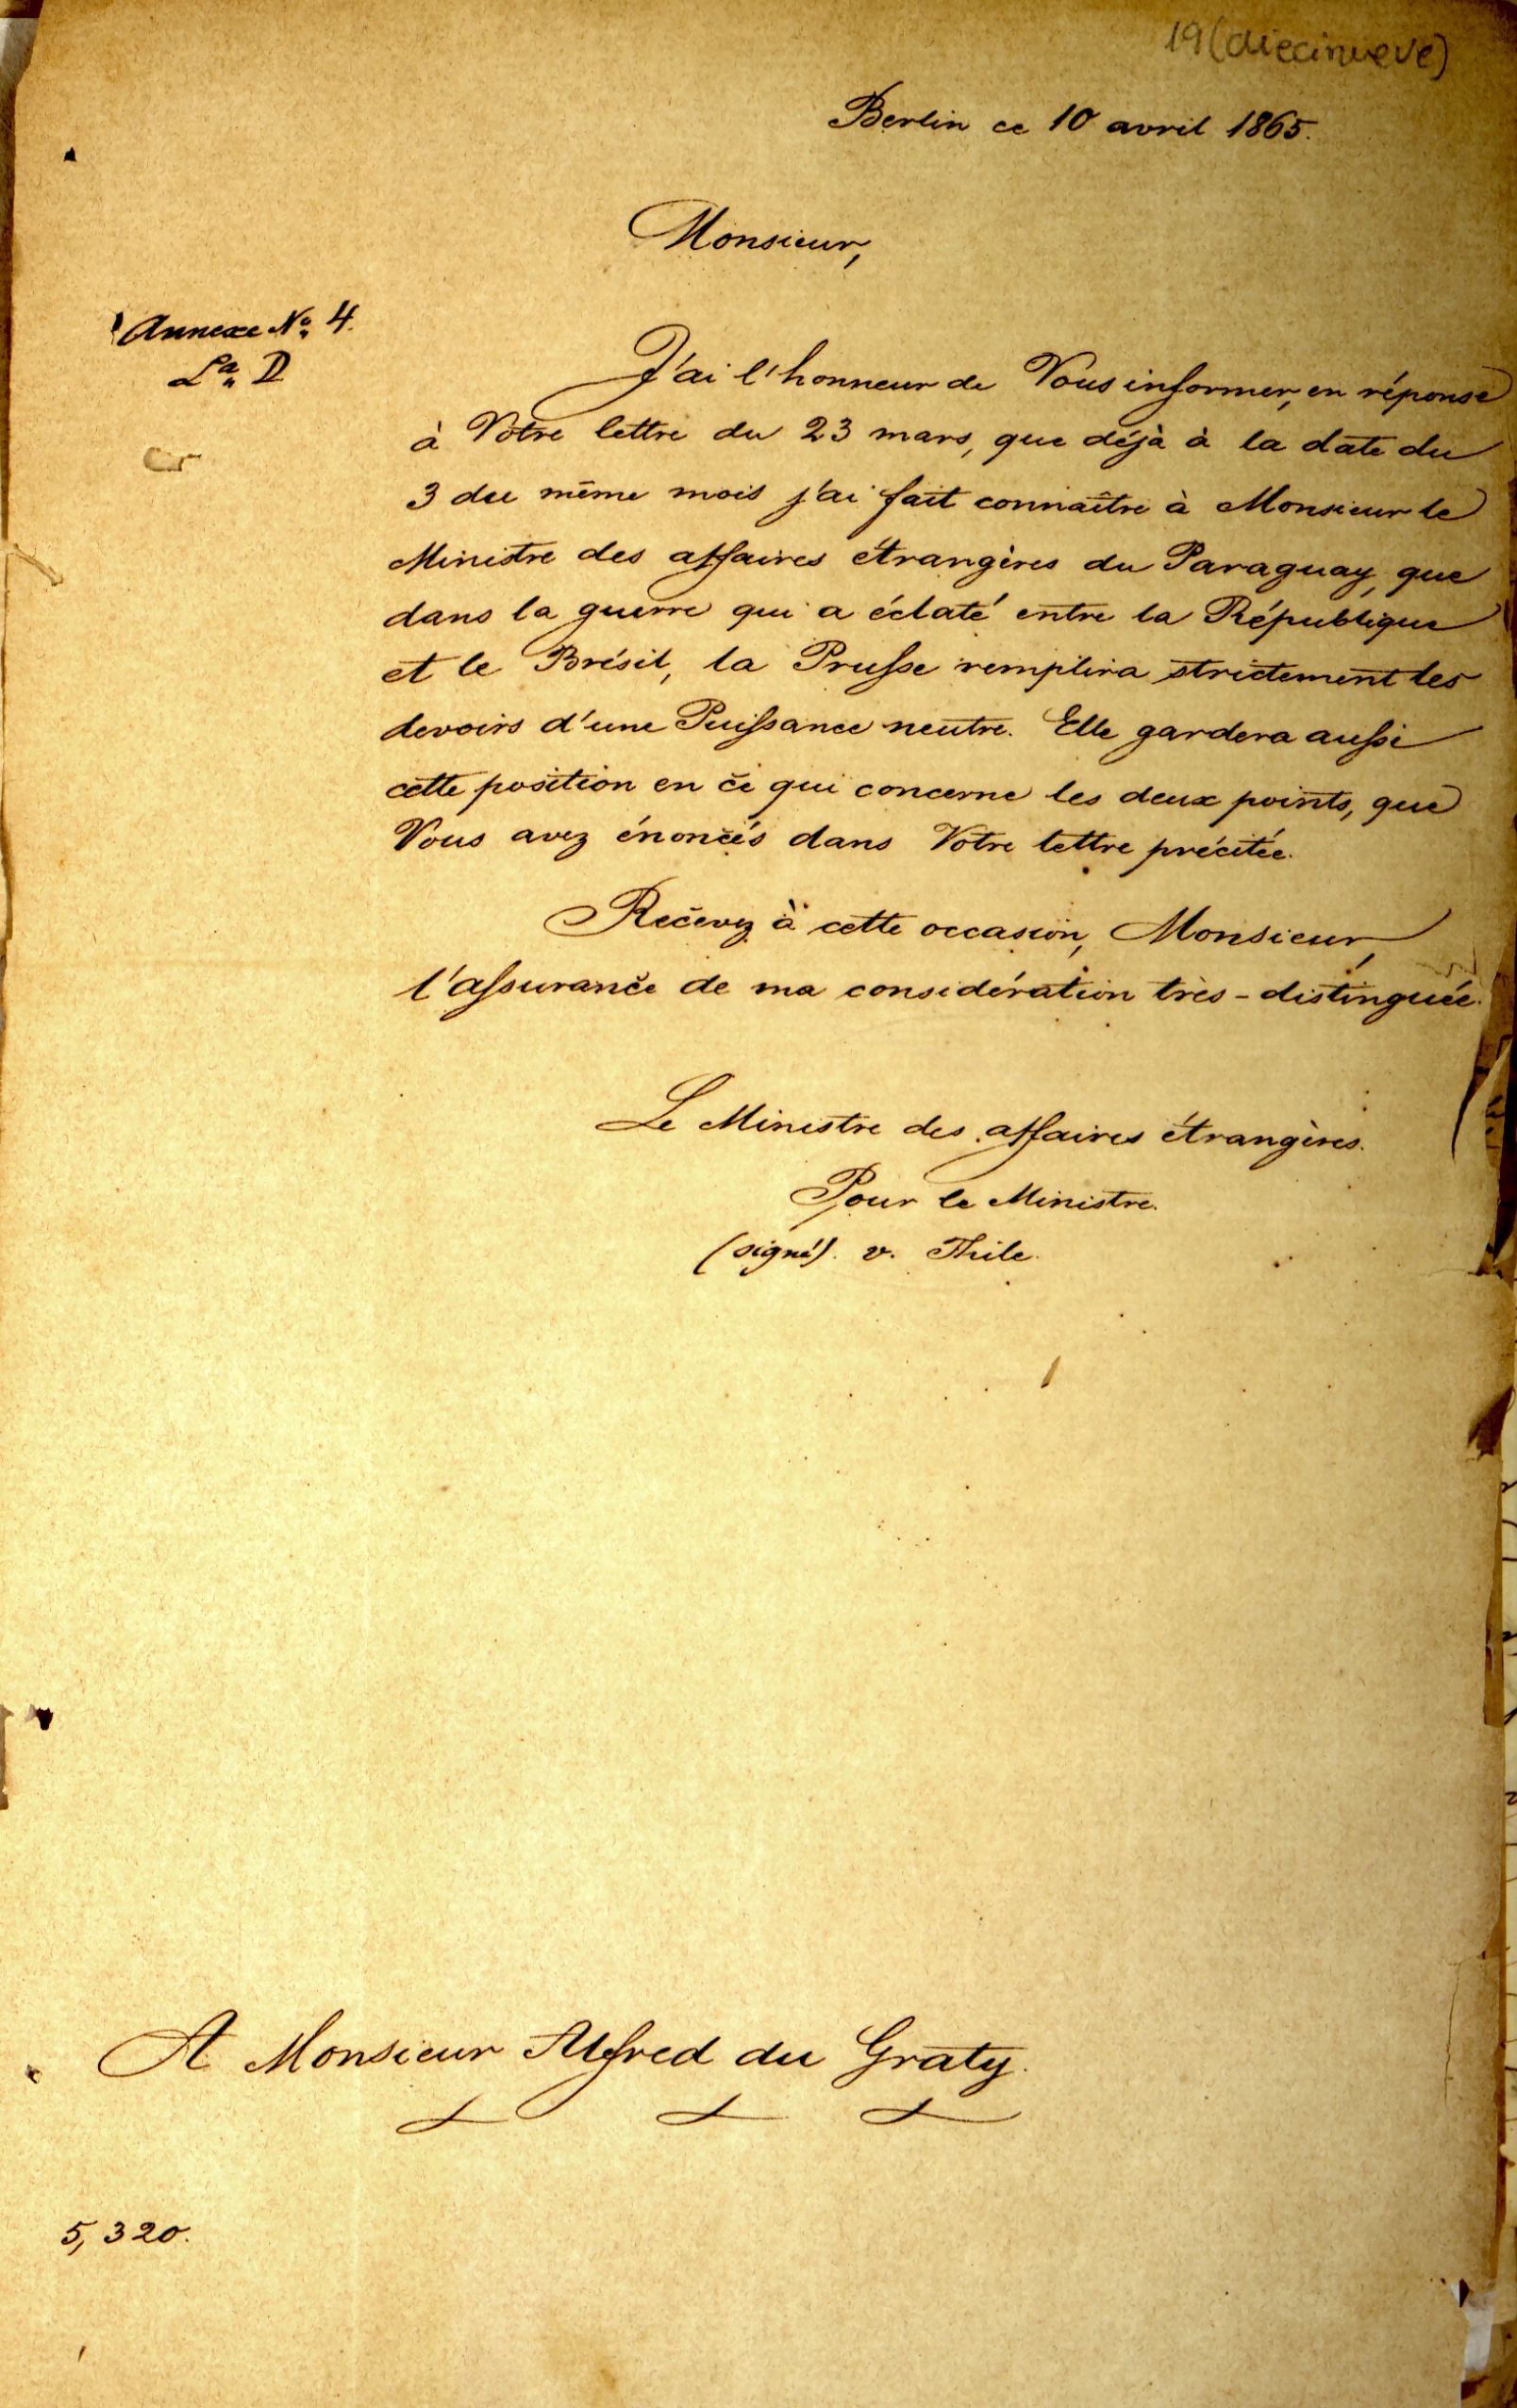 19 (diecinueve)
Berlin ce 10 avril 1865.
Monsieur,
Annexe No. 4.
La. D
J'ai l'honneur de Vous informer, en réponse
à Votre lettre du 23 mars, que déjà à la date du
3 du même mois j'ai fait connaître à Monsieur le
Ministre des affaires étrangères du Paraguay, que
dans la guerre qui a éclaté entre la République
et le Brésil, la Prusse remplira strictement les
devoirs d'une Puissance neutre. Elle gardera aussi
cette position en ce qui concerne les deux points, que
Vous avez énoncés dans Votre lettre précitée.
Recevez à cette occasion, Monsieur,
l'assurance de ma considération très-distinguée.
Le Ministre des affaires étrangères.
Pour le Ministre.
(signé). v. Thile.
A Monsieur Alfred du Graty.
5,320.